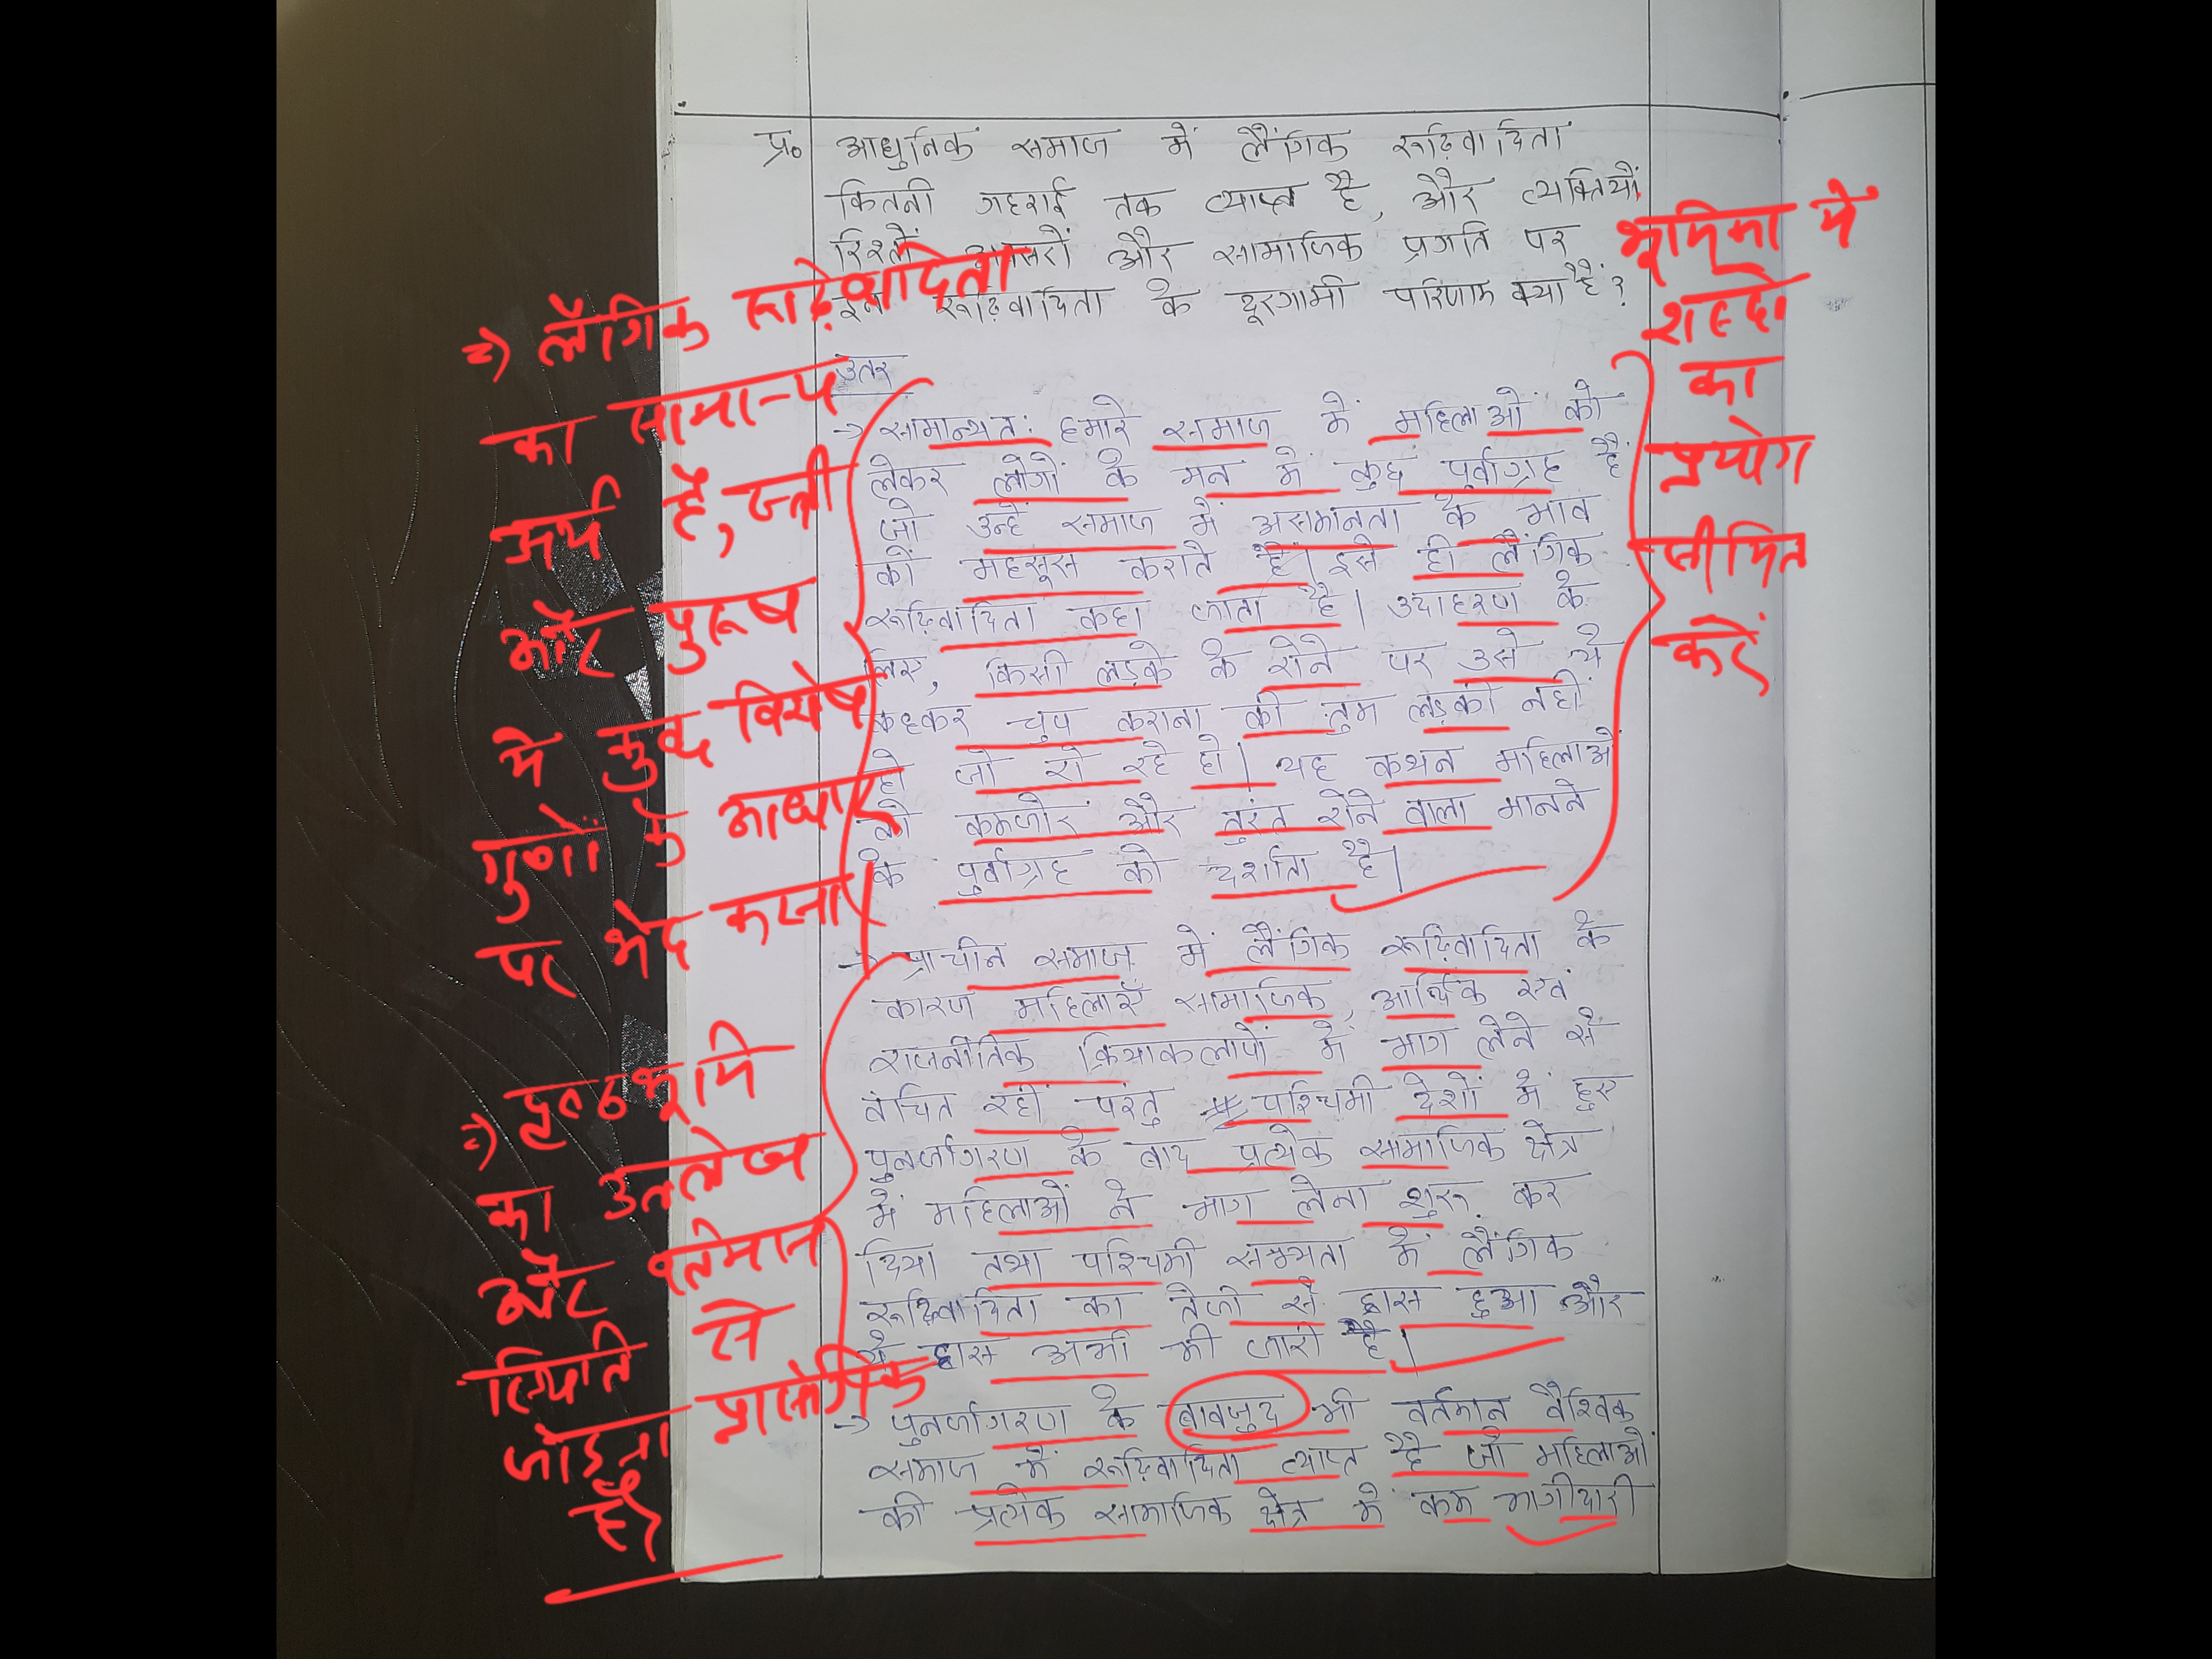 प्र० आधुनिक समाज में लैंगिक रूढ़िवादिता
कितनी गहराई तक व्याप्त है, और व्यक्तियों,
रिश्तों, अवसरों और सामाजिक प्रगति पर
इन रूढ़िवादिता के दूरगामी परिणाम क्या हैं?
उतर
→ सामान्यत: हमारे समाज में महिलाओं को
लेकर लोगों के मन में कुछ पुर्वाग्रह हैं
जो उन्हें समाज में असमानता के भाव
को महसूस कराते हैं। इसे ही लैंगिक
रूढ़िवादिता कहा जाता है। उदाहरण के
लिए, किसी लड़के के रोने पर उसे ये
कहकर चुप कराना की तुम लड़की नहीं
हो जो रो रहे हो। यह कथन महिलाओं
को कमजोर और तुरंत रोने वाला मानने
के पुर्वाग्रह को दर्शाता है।
→ प्राचीन समाज में लैंगिक रूढ़िवादिता के
कारण महिलाएँ सामाजिक, आर्थिक एवं
राजनीतिक क्रियाकलापों में भाग लेने से
वंचित रहीं परंतु पश्चिमी देशों में हुए
पुनर्जागरण के बाद प्रत्येक सामाजिक क्षेत्र
में महिलाओं ने भाग लेना शुरू कर
दिया तथा पश्चिमी सभ्यता में लैंगिक
रूढ़िवादिता का तेजी से ह्रास हुआ और
ये ह्रास अभी भी जारी है।
→ पुनर्जागरण के बावजुद भी वर्तमान वैश्विक
समाज में रूढ़िवादिता व्याप्त है जो महिलाओं
की प्रत्येक सामाजिक क्षेत्र में कम भागीदारी
⇒ लैंगिक रूढ़िवादिता
का सामान्य
अर्थ है, स्त्री
और पुरूष
में कुछ विशेष
गुणों के आधार
पर भेद करना।
⇒ पृष्ठभूमि
का उल्लेख
और वर्तमान
स्थिति से
जोड़ना प्रासंगिक
है।
भूमिका में
शब्दों
का
प्रयोग
सीमित
करें